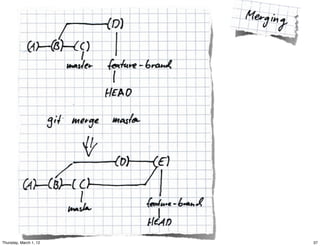 Merging
(D)
(A)—(B)—(C)
master feature-branch
HEAD
git merge master
(D)—(E)
(A)—(B)—(C)
master feature-branch
HEAD
Thursday, March 1, 12
37